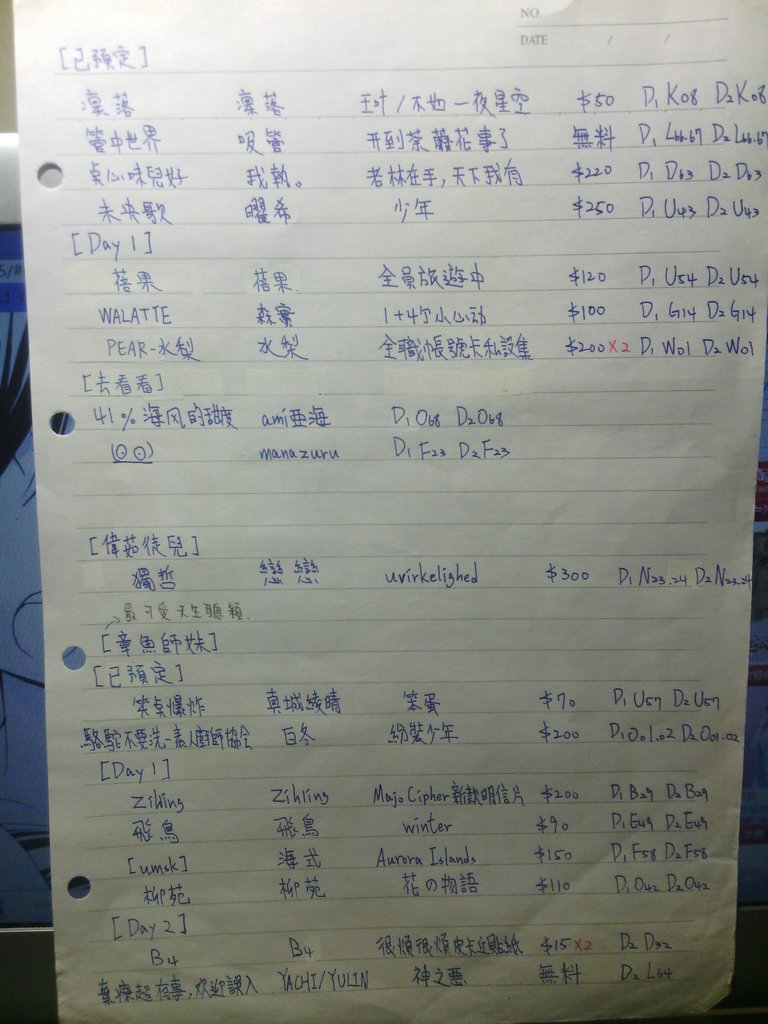 NO.
DATE / /
[已預定]
凜落 凜落 王叶/不如一夜星空 $50 D1 K08 D2 K08
管中世界 吸管 开到荼蘼花事了 無料 D1 L66.67 D2 L66.67
桌心味兒好 我執。 若林在手,天下我有 $220 D1 D63 D2 D63
未央歌 曜希 少年 $250 D1 U43 D2 U43
[Day 1]
蓓果 蓓果 全員旅遊中 $120 D1 U54 D2 U54
WALATTE 森實 1+4个小心动 $100 D1 G14 D2 G14
PEAR-水梨 水梨 全職帳號卡私設集 $200×2 D1 W01 D2 W01
[去看看]
41%海风的甜度 ami亜海 D1 O68 D2 O68
(⊙⊙) manazuru D1 F23 D2 F23
[偉茹徒兒]
獨哲 戀戀 uvirkelighed $300 D1 N23.24 D2 N23.24
最可愛天生聰穎
[章魚師妹]
[已預定]
笑桌爆炸 真城綾晴 笨蛋 $70 D1 U57 D2 U57
駱駝不要洗-素人廚師協會 白冬 紛裝少年 $200 D1 O01.02 D2 O01.02
[Day 1]
Zihling Zihling Majo Cipher新款明信片 $200 D1 B29 D2 B29
飛鳥 飛鳥 winter $90 D1 E49 D2 E49
[umsk] 海式 Aurora Islands $150 D1 F58 D2 F58
柳苑 柳苑 花の物語 $110 D1 O42 D2 O42
[Day 2]
B4 B4 很煩很煩皮卡丘貼紙 $15×2 D2 D32
棄療超有事,欢迎誤入 YACHI/YULIN 神之惡 無料 D2 L64